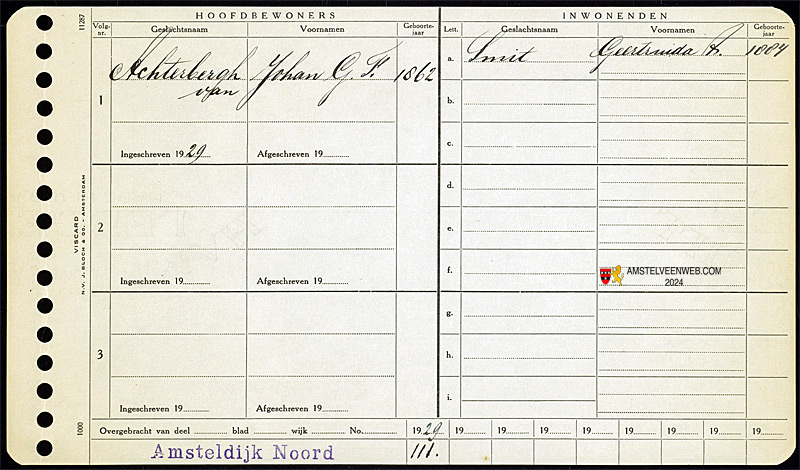 HOOFDBEWONERS
INWONENDEN
11287
Volg-nr.
Geslachtsnaam
Voornamen
Geboorte-jaar
Lett.
Geslachtsnaam
Voornamen
Geboorte-jaar
1
Achterbergh
van
Johan G. F.
1862
Ingeschreven 1929
Afgeschreven 19
a.
Smit
Geertruida
1884
b.
c.
2
Ingeschreven 19
Afgeschreven 19
d.
e.
f.
AMSTELVEENWEB.COM
2024
VISCARD
N.V. J. BLOCH & CO. - AMSTERDAM
3
Ingeschreven 19
Afgeschreven 19
g.
h.
i.
1000
Overgebracht van deel blad wijk No. 1929 19 19 19 19 19 19 19 19
Amsteldijk Noord
111.